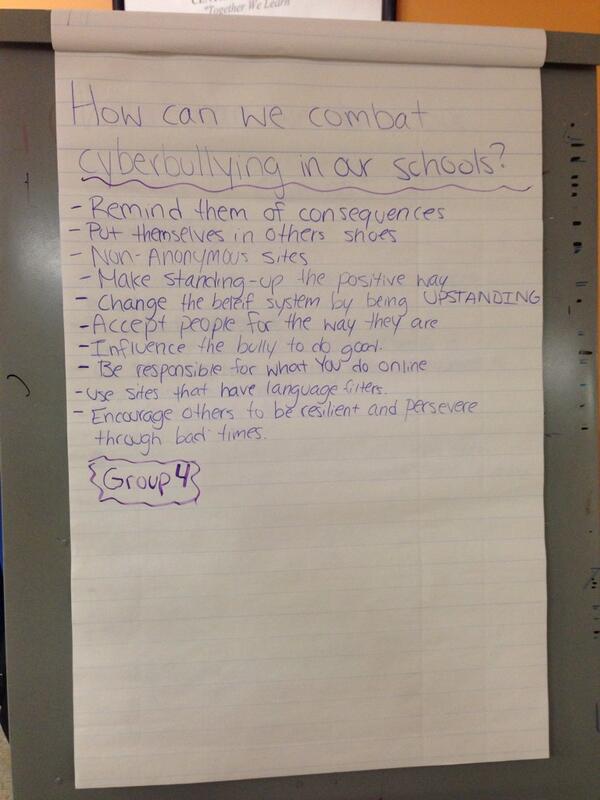 "Together We Learn"
How can we combat
cyberbullying in our schools?
- Remind them of consequences
- Put themselves in others shoes
- Non-Anonymous sites
- Make standing-up the positive way
- Change the beleif system by being UPSTANDING
- Accept people for the way they are
- Influence the bully to do good.
- Be responsible for what You do online
- use sites that have language filters.
- Encourage others to be resilient and persevere
through bad times.
Group 4